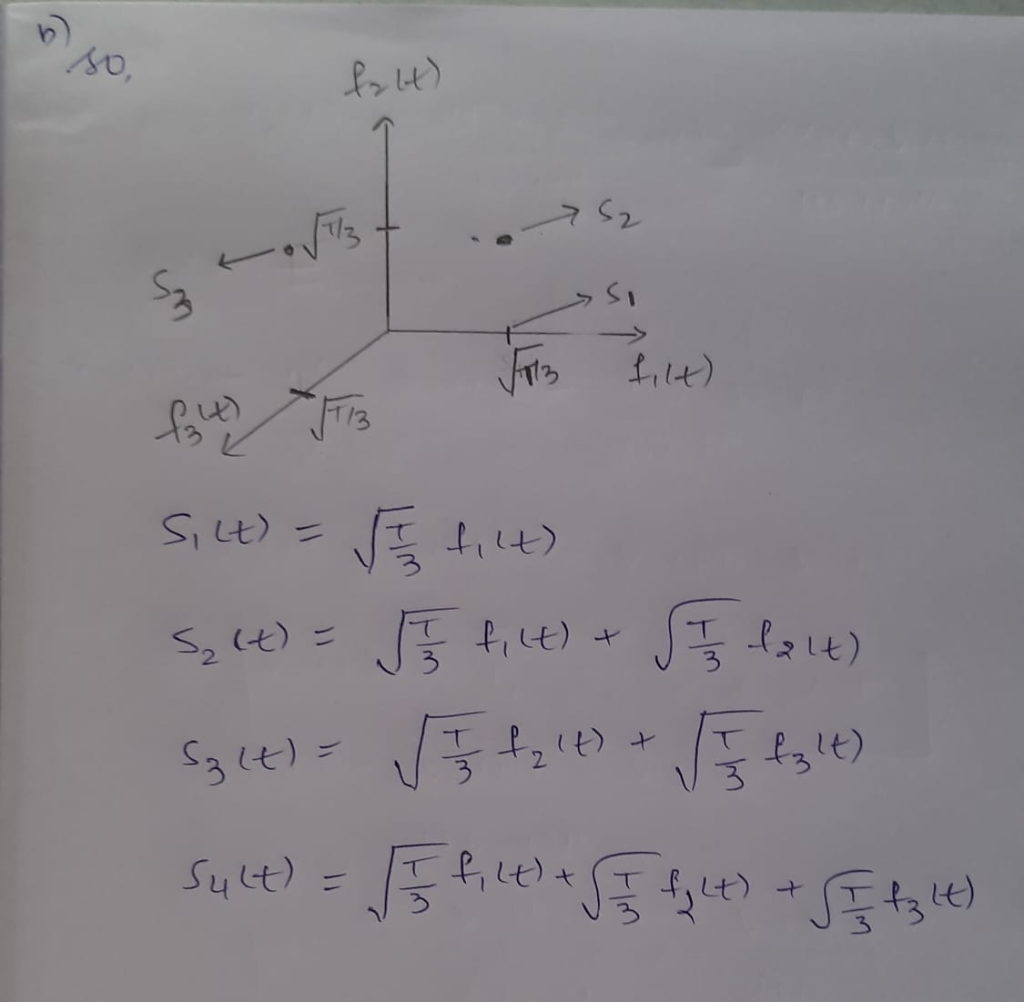 b)
so,
f₂(t)
√T/3
S₂
S₃
S₁
√T/3
f₁(t)
f₃(t)
√T/3
S₁(t) = √(T/3) f₁(t)
S₂(t) = √(T/3) f₁(t) + √(T/3) f₂(t)
S₃(t) = √(T/3) f₂(t) + √(T/3) f₃(t)
S₄(t) = √(T/3) f₁(t) + √(T/3) f₂(t) + √(T/3) f₃(t)